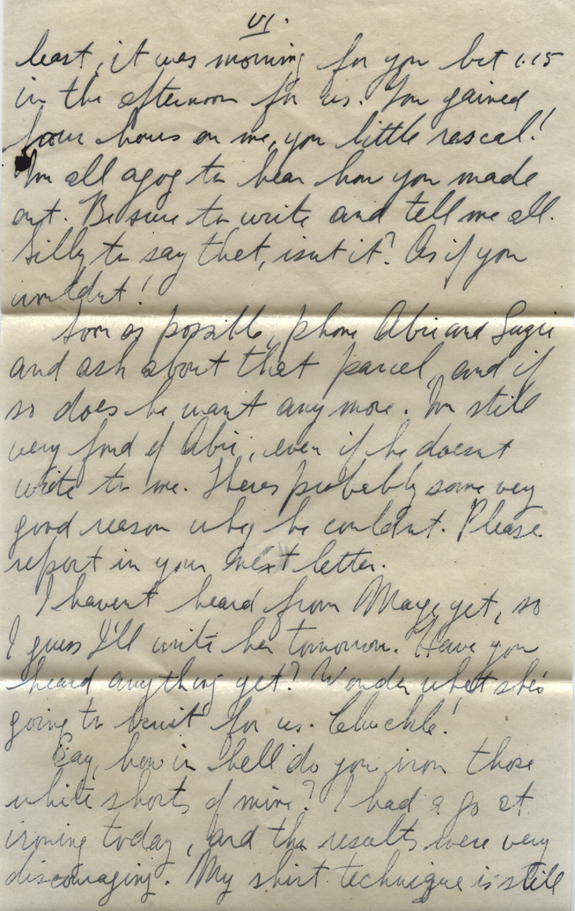 VI.
least, it was morning for you but 1.15
in the afternoon for us. You gained
four hours on me, you little rascal!
I'm all agog to hear how you made
out. Be sure to write and tell me all.
Silly to say that, isn't it? As if you
wouldn't!
Soon as possible, phone Abie and Suzie
and ask about that parcel, and if
so does he want any more. I'm still
very fond of Abie, even if he doesnt
write to me. There's probably some very
good reason why he couldn't. Please
report in your next letter.
I haven't heard from Maye yet, so
I guess I'll write her tomorrow. Have you
heard anything yet? Wonder what she's
going to knit for us. Chuckle!
Say, how in hell do you iron those
white shorts of mine? I had a go at
ironing today, and the results were very
discouraging. My shirt technique is still